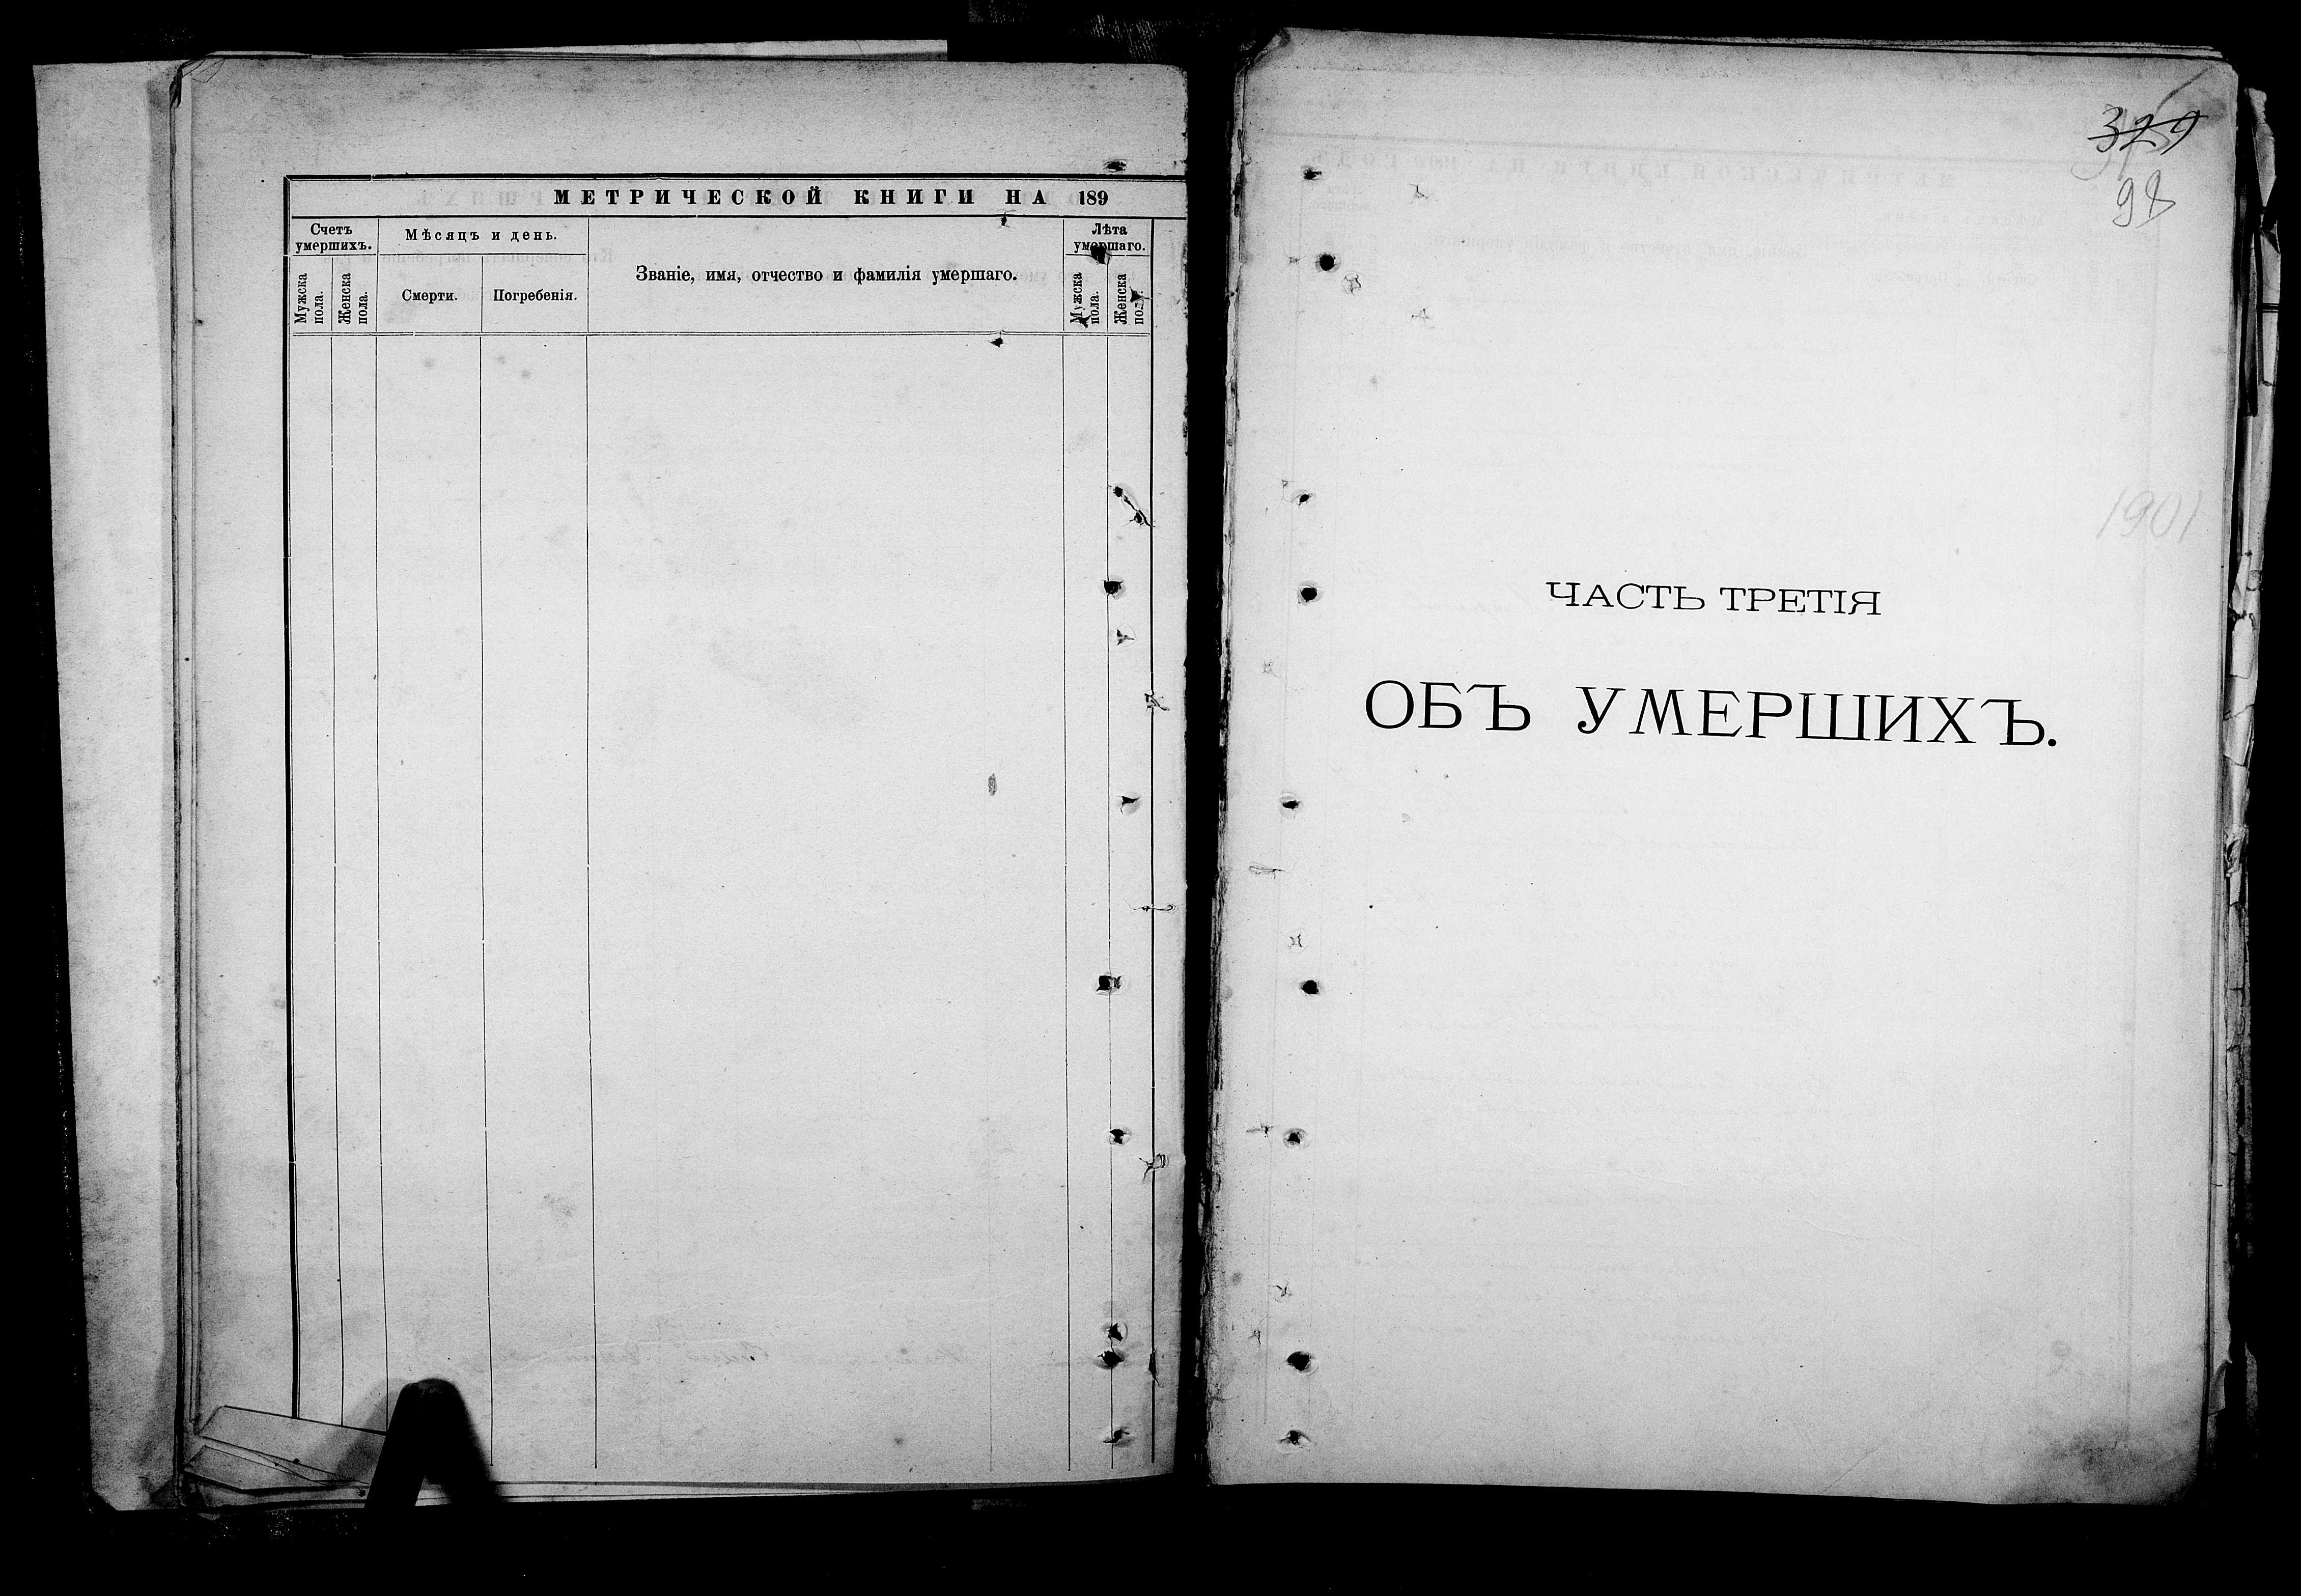 МЕТРИЧЕСКОЙ КНИГИ НА 189
Счетъ умершихъ.
Мужска пола.
Женска пола.
Мѣсяцъ и день.
Смерти.
Погребенія.
Званіе, имя, отчество и фамилія умершаго.
Лѣта умершаго.
Мужска пола.
Женска пола.
329
98
1901
ЧАСТЬ ТРЕТІЯ
ОБЪ УМЕРШИХЪ.